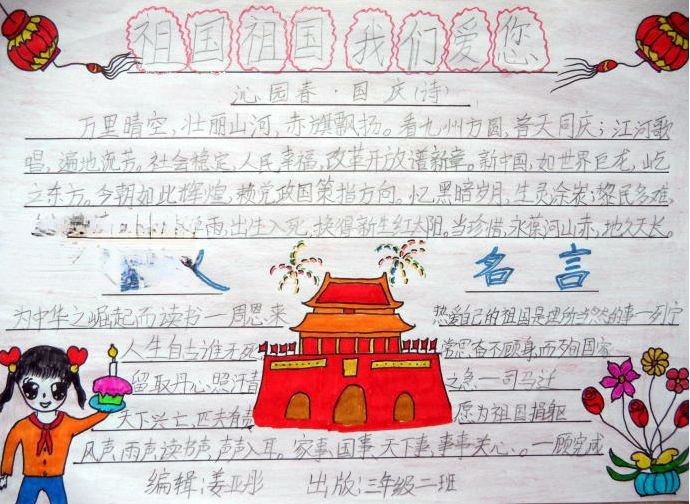 祖国祖国我们爱您
沁园春·国庆(诗)
万里晴空,壮丽山河,赤旗飘扬。看九州方圆,普天同庆;江河歌
唱,遍地流芳。社会稳定,人民幸福,改革开放谱新章。新中国,如世界巨龙,屹
立东方。今朝如此辉煌,赖党政国策指方向。忆,黑暗岁月,生灵涂炭;黎民多难,
雨,出生入死,换得新生红太阳。当珍惜,永葆河山赤,地久天长。
人 名言
为中华之崛起而读书—周恩来 热爱自己的祖国是理所当然的事—列宁
人生自古谁无死 常思奋不顾身而殉国家
留取丹心照汗青 之急—司马迁
天下兴亡,匹夫有责 愿为祖国捐躯
风声,雨声,读书声,声声入耳。家事,国事,天下事,事事关心。—顾宪成
编辑:姜亚彤 出版:三年级二班